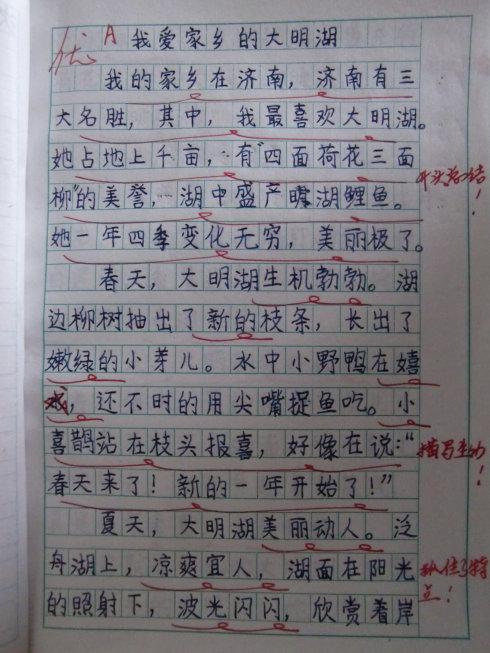 优 A 我爱家乡的大明湖
我的家乡在济南，济南有三
大名胜，其中，我最喜欢大明湖。
她占地上千亩，有“四面荷花三面
柳”的美誉，湖中盛产嘴湖鲤鱼。
她一年四季变化无穷，美丽极了。
春天，大明湖生机勃勃。湖
边柳树抽出了新的枝条，长出了
嫩绿的小芽儿。水中小野鸭在嬉
戏，还不时的用尖嘴捉鱼吃。小
喜鹊站在枝头报喜，好像在说：“
春天来了！新的一年开始了！”
夏天，大明湖美丽动人。泛
舟湖上，凉爽宜人，湖面在阳光
的照射下，波光闪闪，欣赏着岸
开头总结！
描写生动！